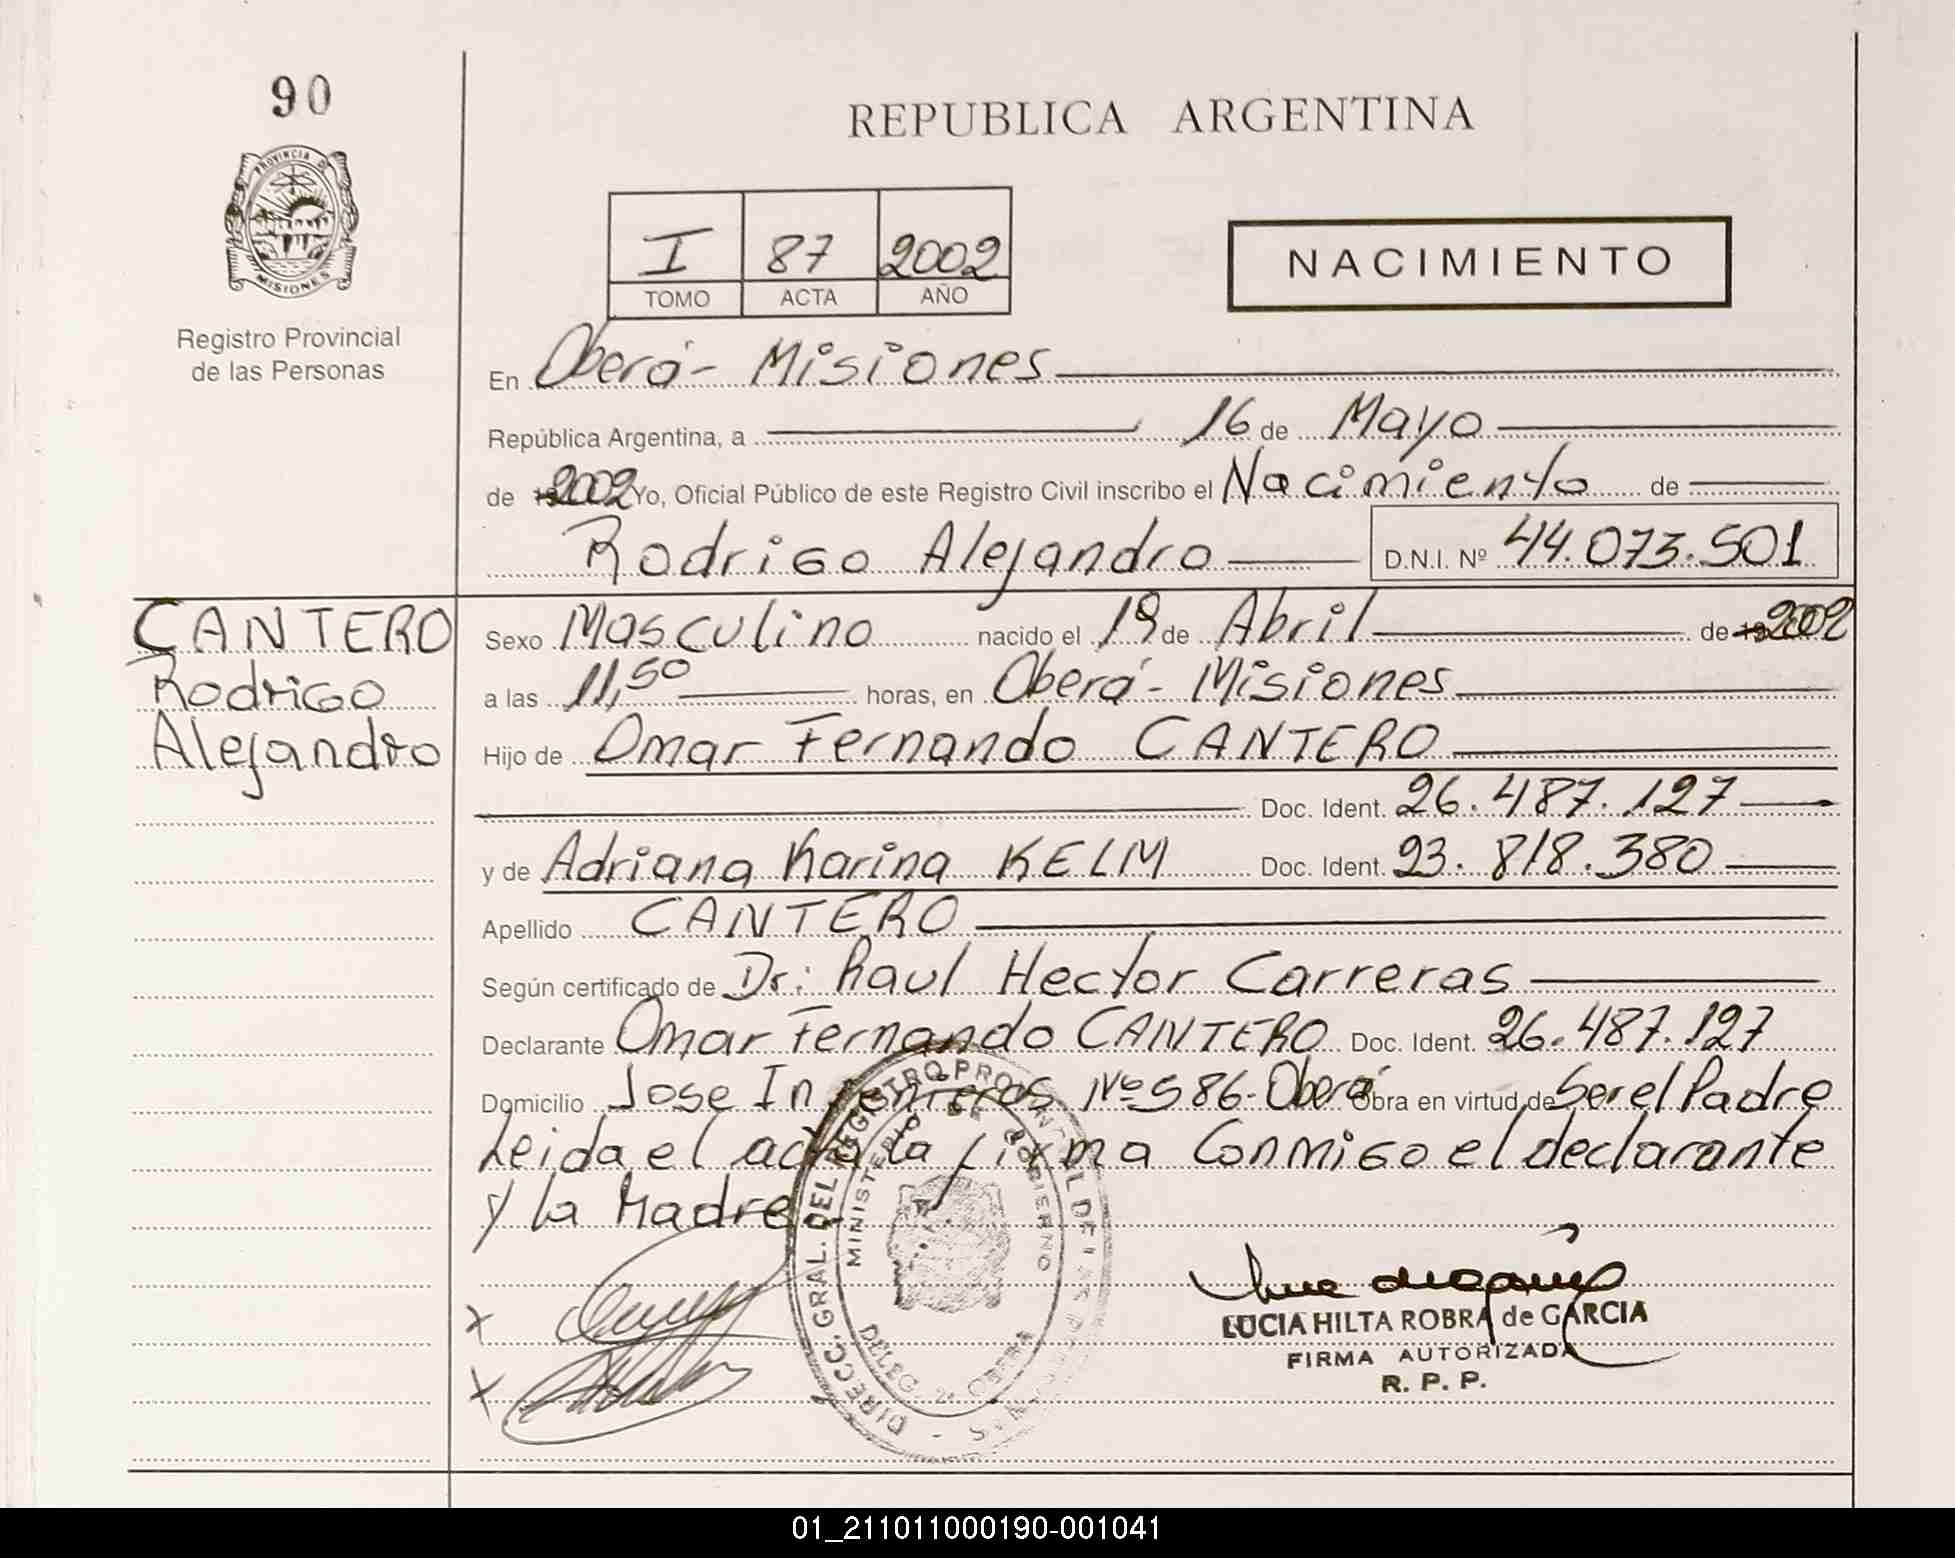 90
REPUBLICA ARGENTINA
PROVINCIA DE
MISIONES
Registro Provincial
de las Personas
I 87 2002
TOMO ACTA AÑO
NACIMIENTO
En Oberá - Misiones
República Argentina, a 16 de Mayo
de 2002 Yo, Oficial Público de este Registro Civil inscribo el Nacimiento de
Rodrigo Alejandro D.N.I. Nº 44.073.501
CANTERO
Rodrigo
Alejandro
Sexo Masculino nacido el 19 de Abril de 2002
a las 11,50 horas, en Oberá - Misiones
Hijo de Omar Fernando CANTERO
Doc. Ident. 26.487.127
y de Adriana Karina KELM Doc. Ident. 23.818.380
Apellido CANTERO
Según certificado de Dr: Raul Hector Carreras
Declarante Omar Fernando CANTERO Doc. Ident. 26.487.127
Domicilio Jose Ingenieros Nº 586 - Oberá Obra en virtud de Ser el Padre
Leida el acta la firma Conmigo el declarante
y la Madre.
DIRECC. GRAL. DEL REGISTRO PROVINCIAL DE LAS PERSONAS
MINISTERIO DE GOBIERNO
DELEG. OBERA
LUCIA HILTA ROBRA de GARCIA
FIRMA AUTORIZADA
R. P. P.
01_211011000190-001041